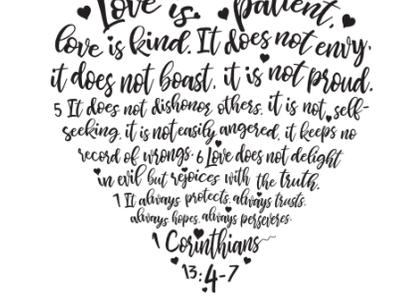 Love is patient,
love is kind. It does not envy.
it does not boast, it is not proud.
5 It does not dishonor others, it is not self-
seeking, it is not easily angered, it keeps no
record of wrongs. 6 Love does not delight
in evil but rejoices with the truth.
7 It always protects, always trusts,
always hopes, always perseveres.
1 Corinthians
13:4-7